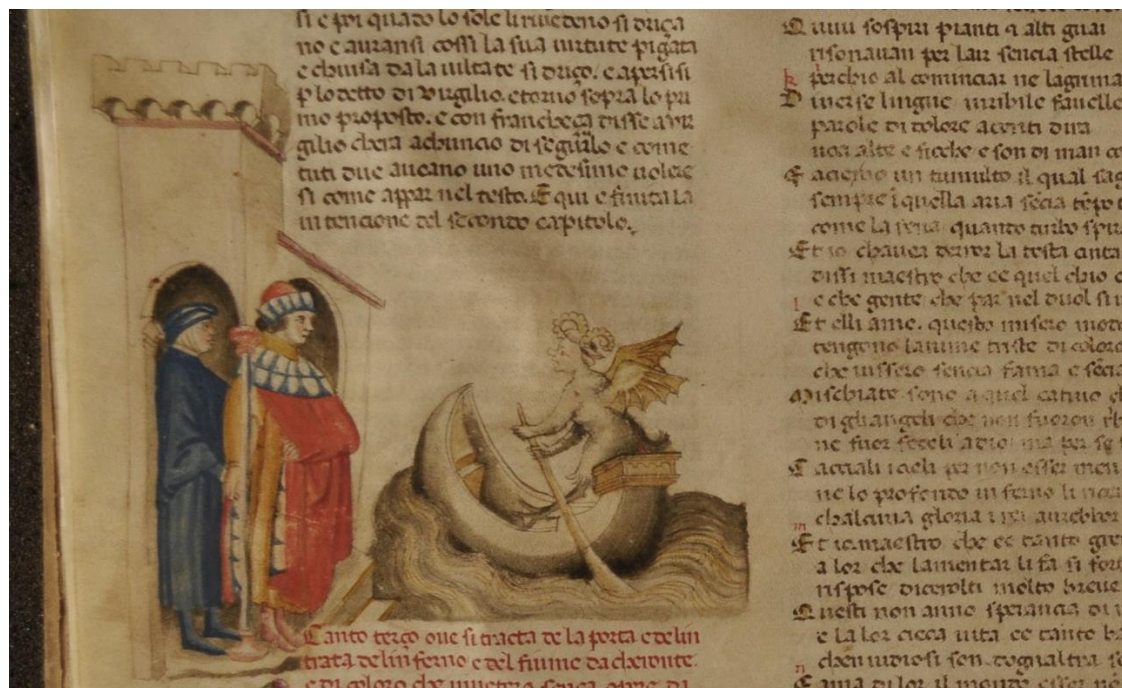 si e poi quado lo sole li riuedeno si driça
no e auransi cossi la sua uirtute pigata
e chiusa da la uiltate si driço. e apersisi
p lo detto di uirgilio. e torno sopra lo pri
mo proposto. e con francheça disse a uir
gilio chera adiuncio di seguilo e come
tuti due aueano uno medesimo uolere
si come appar nel testo. E qui e finita la
intencione del secondo capitolo.
Canto terço oue si tracta de la porta e delin
trata de linferno e del fiume dacheronte.
e di coloro che
Quiui sospiri pianti e alti guai
risonauan per lair sencia stelle
perchio al cominciar ne lagrima
Diuerse lingue orribile fauelle
parole di dolore acenti dira
uoci alte e fioche e son di man co
Faciebo un tumulto il qual sag
sempre i quella aria secia tepo t
come la rena quando turbo spir
Et io chauea deror la testa cinta
dissi maestro che ee quel chio o
e che gente che par nel duol si u
Et elli ame. questo misero modo
tengono lanime triste di coloro
che uissero sencia fama e secia
Mischiate sono a quel catiuo ch
di gli angeli che non fuoron rb
ne fuor fedeli a dio ma per se
Cacciali i cieli per non esser men
ne lo profondo inferno li rice
chalcuna gloria i rei aurebbor
Et io. maestro che ee tanto gre
a lor che lamentar li fa si fort
rispose dicerolti molto breue
Questi non anno sperancia di
e la lor cieca uita ee tanto ba
chenuidiosi son dognaltra so
Fama di lor il mondo esser no